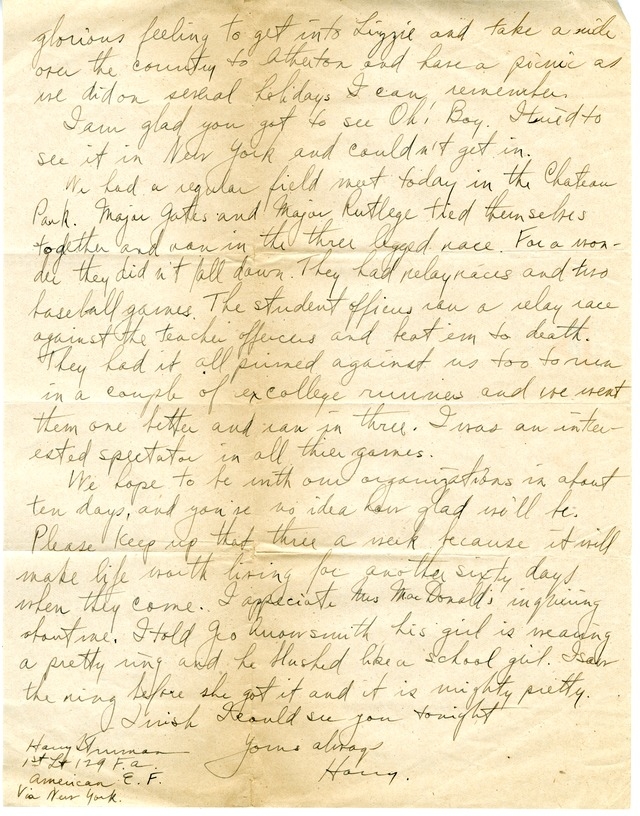 glorious feeling to get into Lizzie and take a ride
over the country to Atherton and have a picnic as
we did on several holidays I can remember.
I am glad you got to see Oh! Boy. I tried to
see it in New York and couldn't get in.
We had a regular field meet today in the Chateau
Park. Major Gates and Major Rutlege tied themselves
together and ran in the three legged race. For a won-
der they did n't fall down. They had relay races and two
baseball games. The student officers ran a relay race
against the teacher officers and beat em to death.
They had it all primed against us too to run
in a couple of ex college runners and we went
them one better and ran in three. I was an inter-
ested spectator in all thier games.
We hope to be with our organizations in about
ten days, and you've no idea how glad we'll be.
Please keep up that three a week because it will
make life worth living for another sixty days
when they come. I appeciate Mrs MacDonald's inquiring
about me. I told Geo his girl is wearing
a pretty ring and he blushed like a school girl. I saw
the ring before she got it and it is mighty pretty.
I wish I could see you tonight
Yours always
Harry.
Harry S Truman
1st Lt 129 F.A.
American E.F.
Via New York.